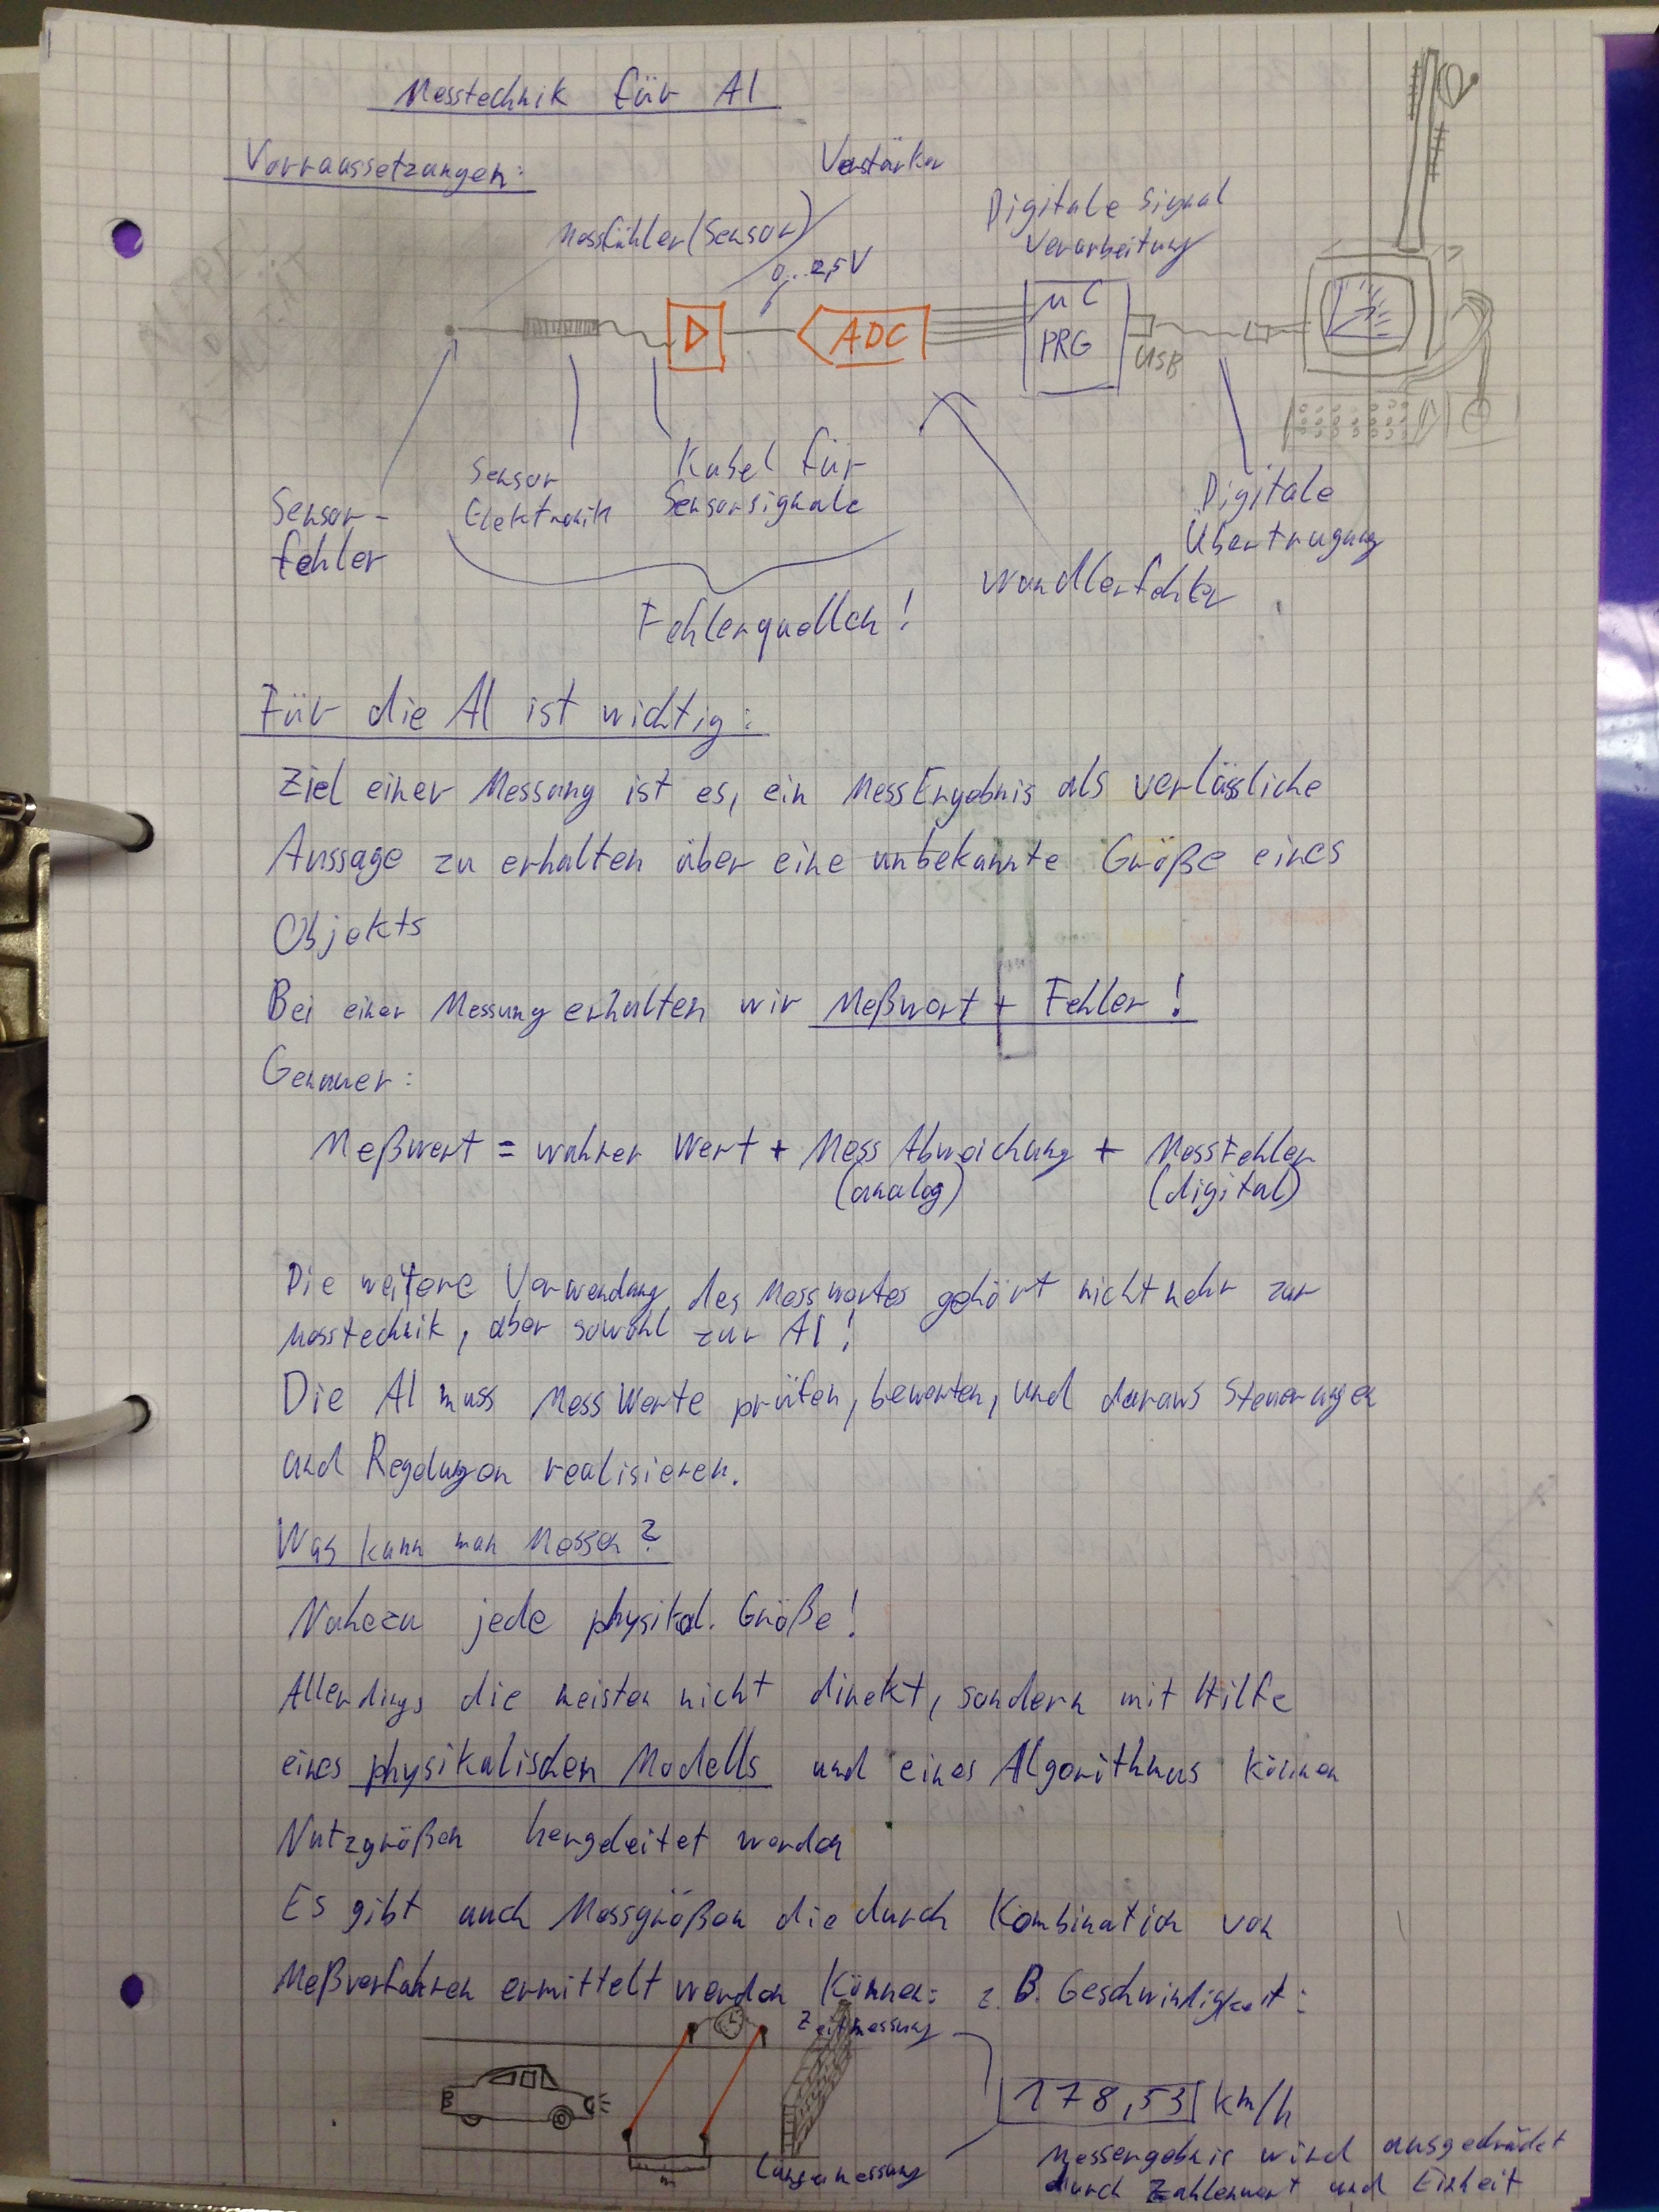 Messtechnik für AI
Vorraussetzungen:
Verstärker
Messfühler (Sensor)
Digitale Signal
Verarbeitung
0...2,5V
ADC
µC
PRG
USB
Sensor-
fehler
Sensor
Elektronik
Kabel für
Sensorsignale
Digitale
Übertragung
Wandlerfehler
Fehlerquellen!
Für die AI ist wichtig:
Ziel einer Messung ist es, ein MessErgebnis als verlässliche
Aussage zu erhalten über eine unbekannte Größe eines
Objekts
Bei einer Messung erhalten wir Meßwert + Fehler!
Genauer:
Meßwert = wahrer Wert + Mess Abweichung + Messfehler
(analog)
(digital)
Die weitere Verwendung des Messwertes gehört nicht mehr zur
Messtechnik, aber sowohl zur AI!
Die AI muss Mess Werte prüfen, bewerten, und daraus Steuerungen
und Regelungen realisieren.
Was kann man Messen?
Nahezu jede physikal. Größe!
Allerdings die meisten nicht direkt, sondern mit Hilfe
eines physikalischen Modells und eines Algorithmus können
Nutzgrößen hergeleitet werden
Es gibt auch Messgrößen die durch Kombination von
Meßverfahren ermittelt werden können: z.B. Geschwindigkeit:
Zeitmessung
178,53 km/h
m
Längenmessung
Messergebnis wird ausgedrückt
durch Zahlenwert und Einheit